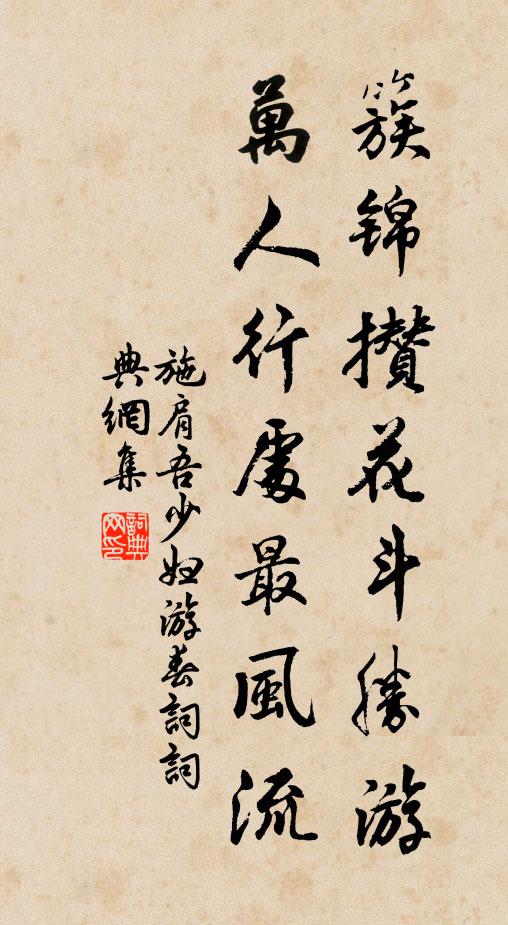 簇锦攒花斗勝游
萬人行處最風流
施肩吾少妇游春詞詞
典網集
詞典网印